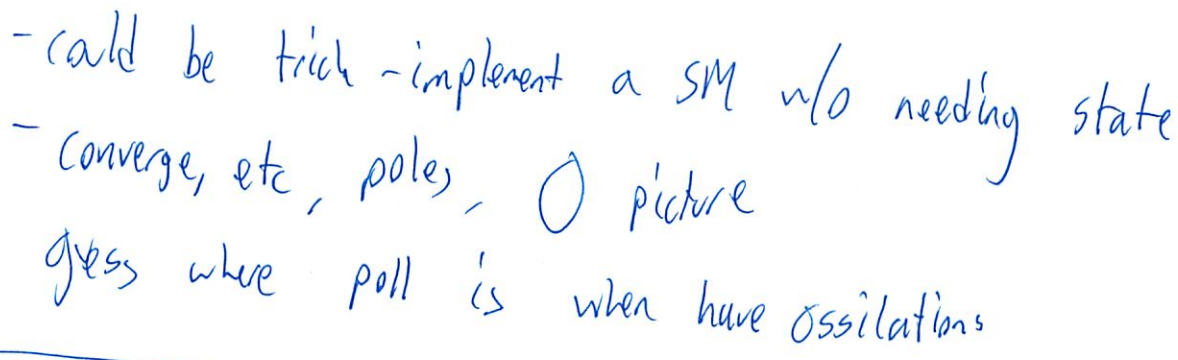 - could be trick - implement a SM w/o needing state
- converge, etc, poles, O picture
guess where poll is when have ossilations